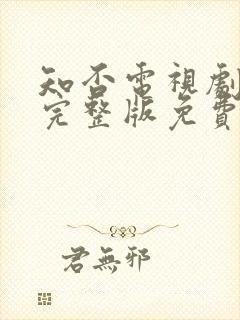 知否電視劇
完整版免費
君無邪